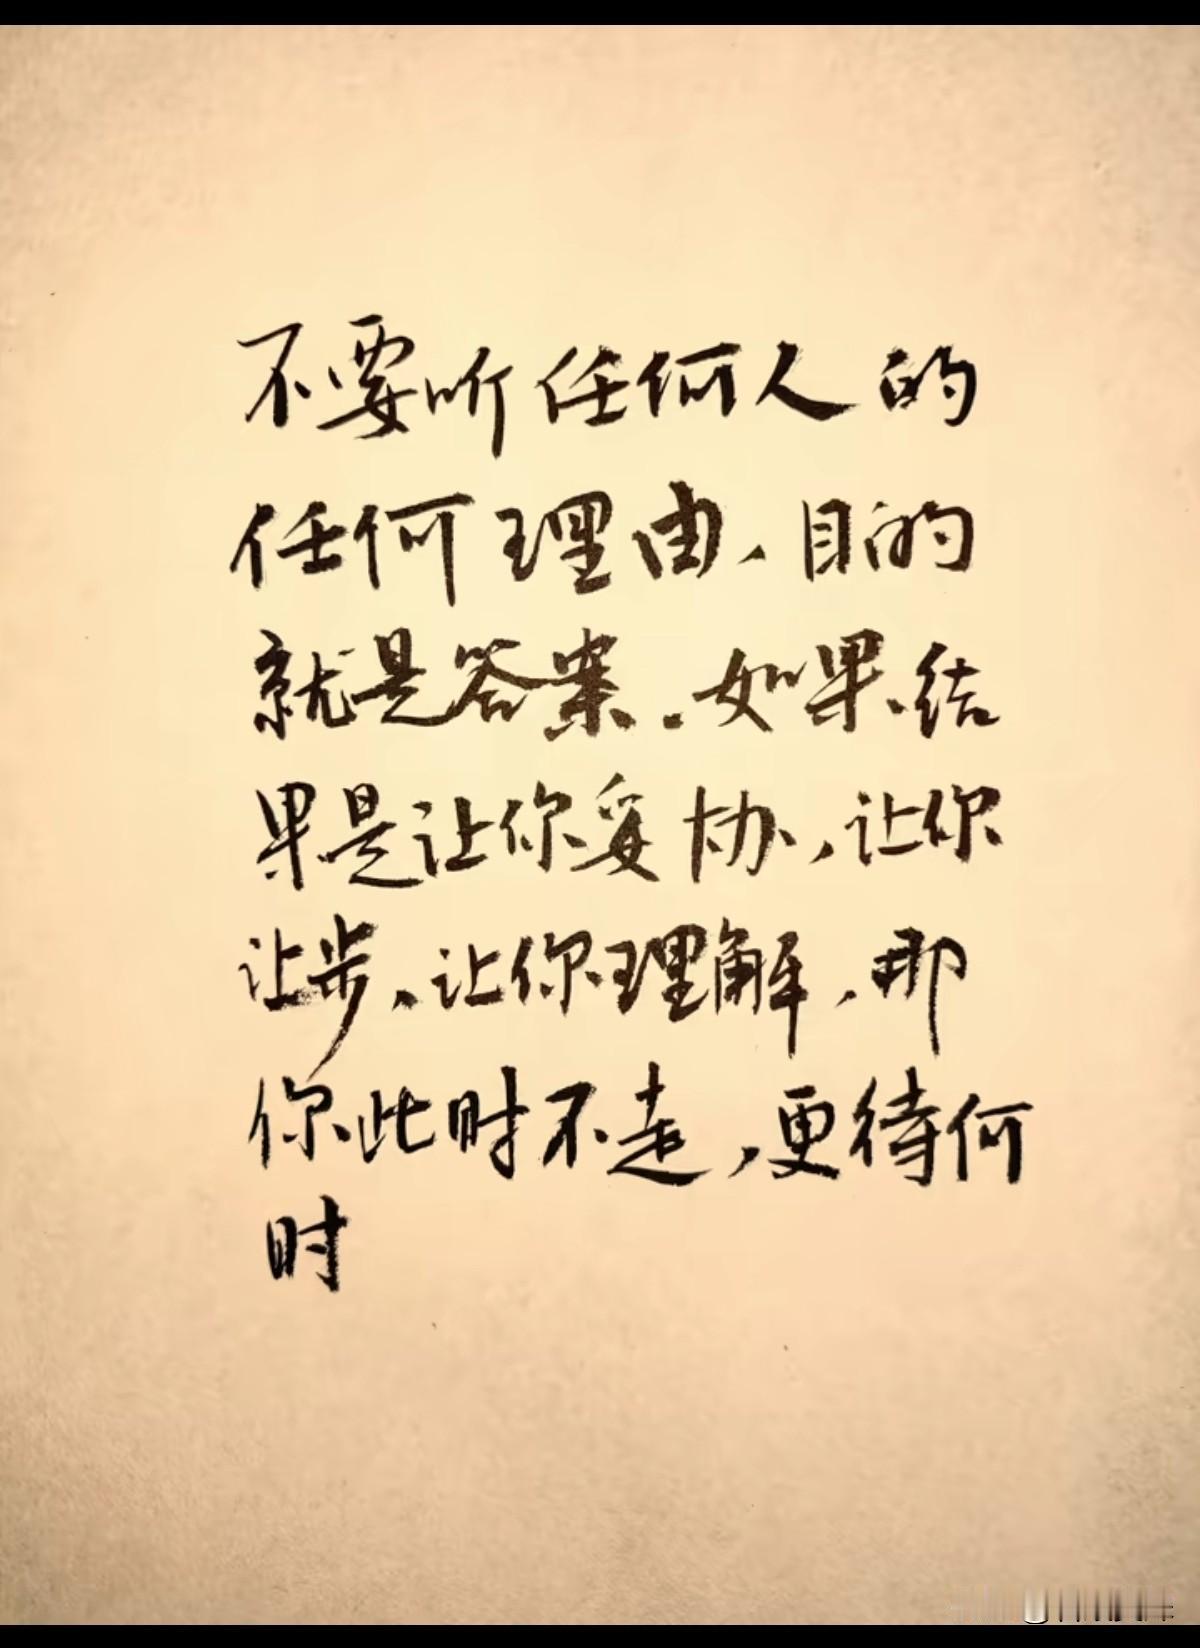 不要听任何人的
任何理由、目的
就是答案.如果结
果是让你妥协,让你
让步、让你理解,那
你此时不走,更待何
时